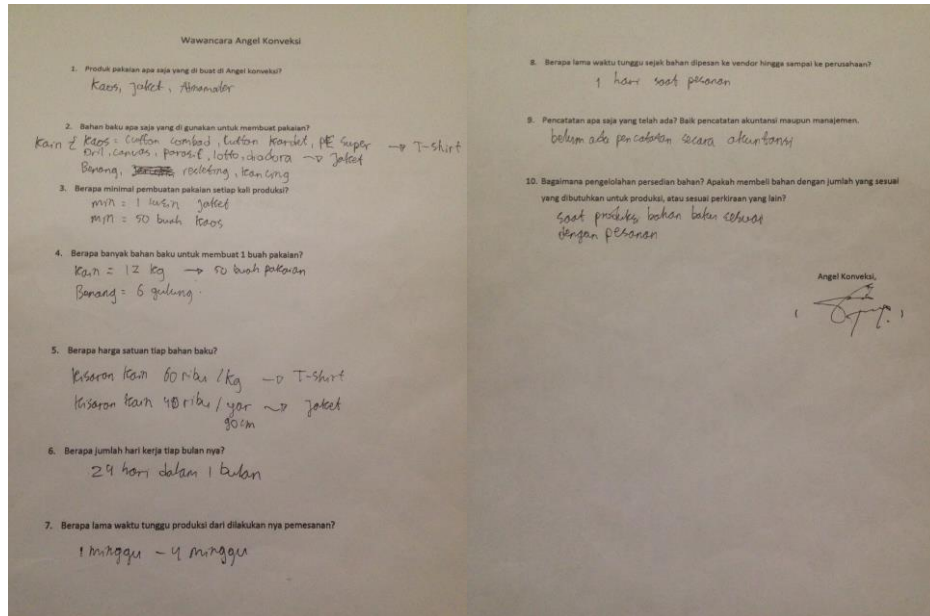 Wawancara Angel Konveksi
1. Produk pakaian apa saja yang di buat di Angel konveksi?
Kaos, Jaket, Almamater
2. Bahan baku apa saja yang di gunakan untuk membuat pakaian?
Kain { Kaos = Cutton combad, Cutton Kardet, PE Super → T-shirt
Dril, canvas, parasit, lotto, diadora → Jaket
Benang, resleting, kancing
3. Berapa minimal pembuatan pakaian setiap kali produksi?
min = 1 lusin Jaket
min = 50 buah kaos
4. Berapa banyak bahan baku untuk membuat 1 buah pakaian?
Kain = 12 kg → 50 buah pakaian
Benang = 6 gulung.
5. Berapa harga satuan tiap bahan baku?
Kisaran kain 60 ribu / kg → T-shirt
Kisaran kain 40 ribu / yar → Jaket
90 cm
6. Berapa jumlah hari kerja tiap bulan nya?
24 hari dalam 1 bulan
7. Berapa lama waktu tunggu produksi dari dilakukan nya pemesanan?
1 minggu - 4 minggu
8. Berapa lama waktu tunggu sejak bahan dipesan ke vendor hingga sampai ke perusahaan?
1 hari saat pesanan
9. Pencatatan apa saja yang telah ada? Baik pencatatan akuntansi maupun manajemen.
belum ada pencatatan secara akuntansi
10. Bagaimana pengelolahan persedian bahan? Apakah membeli bahan dengan jumlah yang sesuai
yang dibutuhkan untuk produksi, atau sesuai perkiraan yang lain?
saat produksi bahan baku sesuai
dengan pesanan
Angel Konveksi,
( )